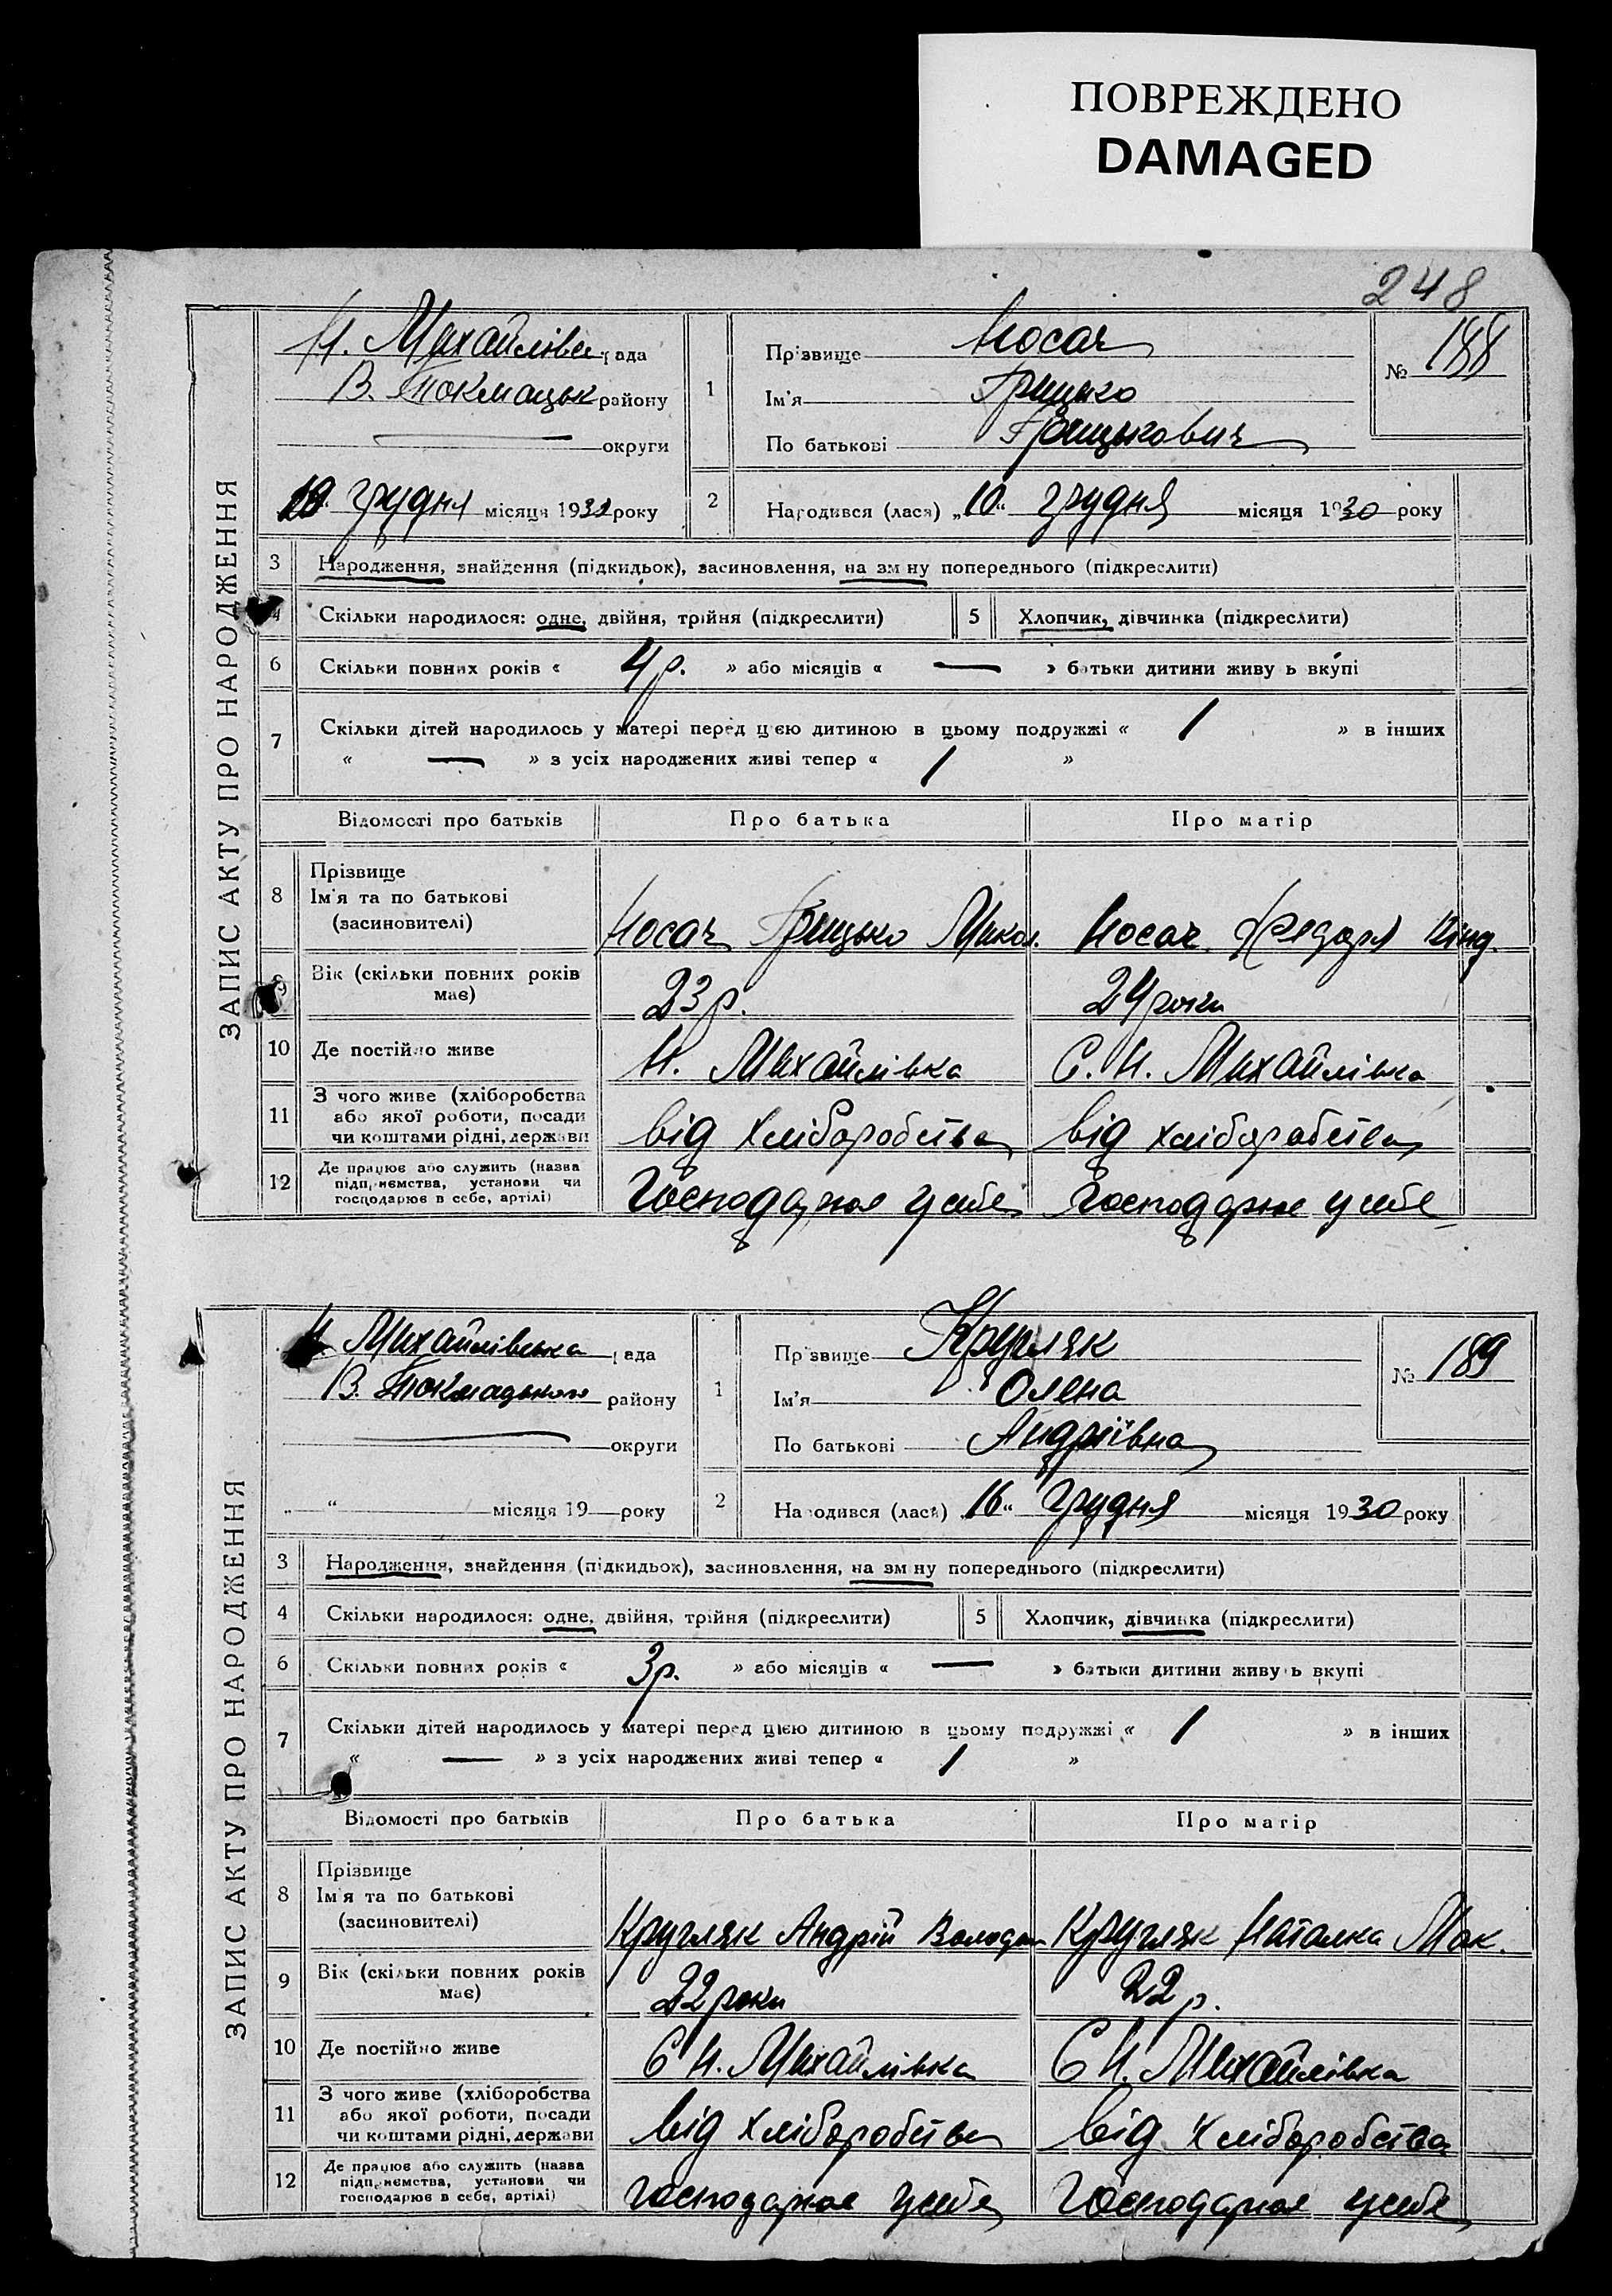 ПОВРЕЖДЕНО
DAMAGED
248
ЗАПИС АКТУ ПРО НАРОДЖЕННЯ
Н. Михайлівсь рада
В. Токмацьк району
округи
грудня місяця 193 року
1
Прізвище Носач
Ім'я Грицько
По батькові Грицькович
№ 188
2 Народився (лася) „10" грудня місяця 1930 року
3 Народження, знайдення (підкидьок), засиновлення, на зм ну попереднього (підкреслити)
4 Скільки народилося: одне, двійня, трійня (підкреслити) 5 Хлопчик, дівчинка (підкреслити)
6 Скільки повних років « 4 р. » або місяців « — » батьки дитини живу ь вкупі
7 Скільки дітей народилось у матері перед цією дитиною в цьому подружжі « 1 » в інших
« — » з усіх народжених живі тепер « 1 »
Відомості про батьків Про батька Про матір
8 Прізвище
Ім'я та по батькові
(засиновителі)
Носач Грицько Микол. Носач Федора
9 Вік (скільки повних років
має)
23 р. 24 роки
10 Де постійно живе Н. Михайлівка С. Н. Михайлівка
11 З чого живе (хліборобства
або якої роботи, посади
чи коштами рідні, держави
від хліборобства від хліборобства
12 Де працює або служить (назва
підприємства, установи чи
господарює в себе, артілі)
Господарює у себе Господарює у себе
ЗАПИС АКТУ ПРО НАРОДЖЕННЯ
Н. Михайлівська рада
В. Токмацького району
округи
„ " місяця 19 року
1
Прізвище Кругляк
Ім'я Олена
По батькові Андріївна
№ 189
2 Народився (лася) „16" грудня місяця 1930 року
3 Народження, знайдення (підкидьок), засиновлення, на зм ну попереднього (підкреслити)
4 Скільки народилося: одне, двійня, трійня (підкреслити) 5 Хлопчик, дівчинка (підкреслити)
6 Скільки повних років « 3 р. » або місяців « — » батьки дитини живу ь вкупі
7 Скільки дітей народилось у матері перед цією дитиною в цьому подружжі « 1 » в інших
« — » з усіх народжених живі тепер « 1 »
Відомості про батьків Про батька Про матір
8 Прізвище
Ім'я та по батькові
(засиновителі)
Кругляк Андрій Володим Кругляк Наталка Мак.
9 Вік (скільки повних років
має)
22 роки 22 р.
10 Де постійно живе С Н. Михайлівка С Н. Михайлівка
11 З чого живе (хліборобства
або якої роботи, посади
чи коштами рідні, держави
від хліборобства від хліборобства
12 Де працює або служить (назва
підприємства, установи чи
господарює в себе, артілі)
господарює у себе Господарює у себе